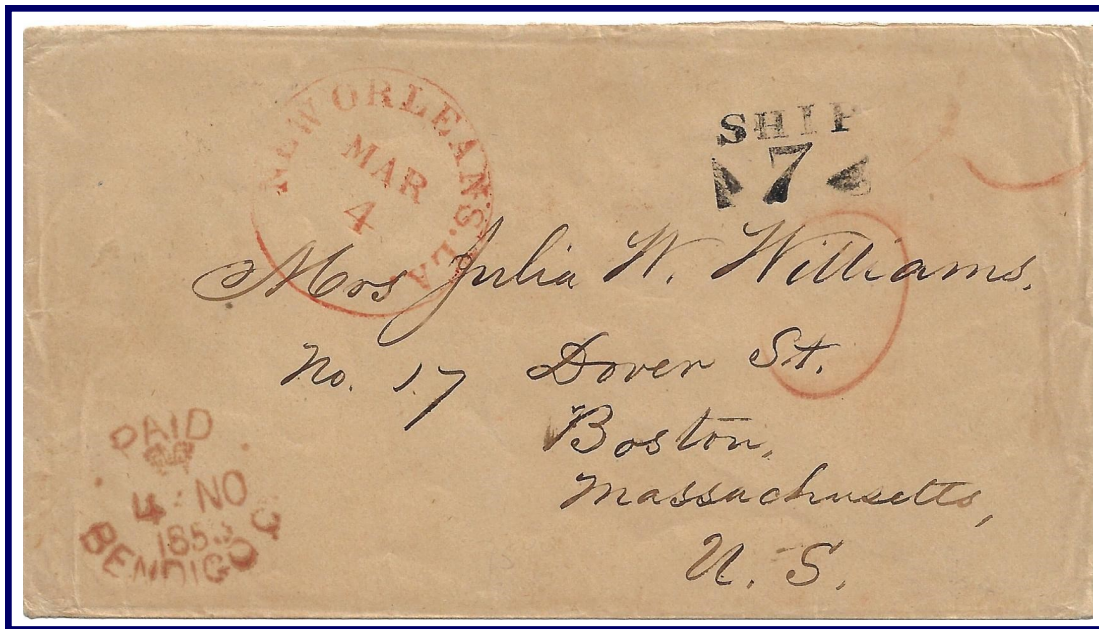 NEW ORLEANS. LA.
MAR
4
SHIP
7
Mrs Julia W. Williams.
No. 17 Dover St.
Boston,
Massachusetts,
U. S.
PAID
4 NO
1853
BENDIGO